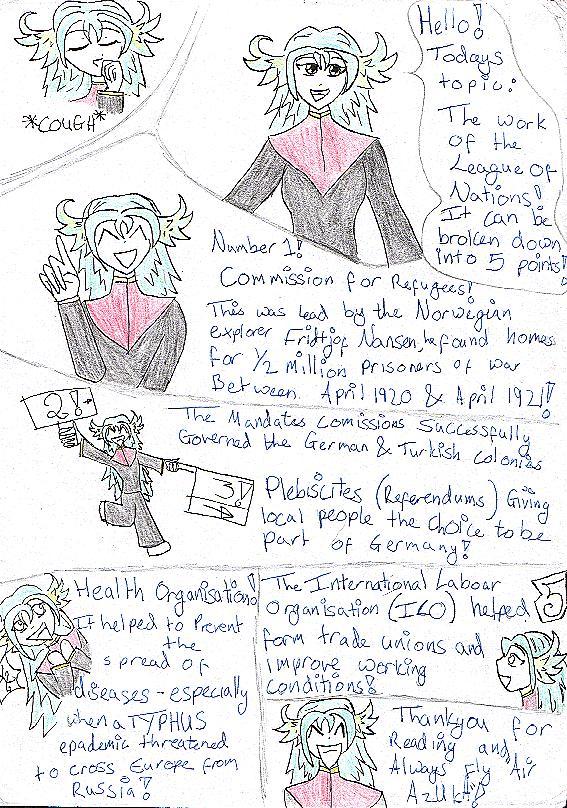 *COUGH*
Hello!
Todays
topic:
The work
of the
League of
Nations!
It can be
broken down
into 5 points!
Number 1!
Commission for Refugees!
This was lead by the Norwegian
explorer Fridtjof Nansen, he found homes
for 1/2 million prisoners of war
Between April 1920 & April 1921!
2!
The Mandates Comissions Successfully
Governed the German & Turkish colonies
3!
Plebiscites (Referendums) Giving
local people the choice to be
part of Germany!
Health Organisation!
It helped to Prevent
the
spread of
diseases - especially
when a TYPHUS
epademic threatened
to cross Europe from
Russia!
The International Labour
Organisation (ILO) helped
form trade unions and
improve working
conditions!
5
Thankyou for
Reading and
Always Fly Air
AzUKA!